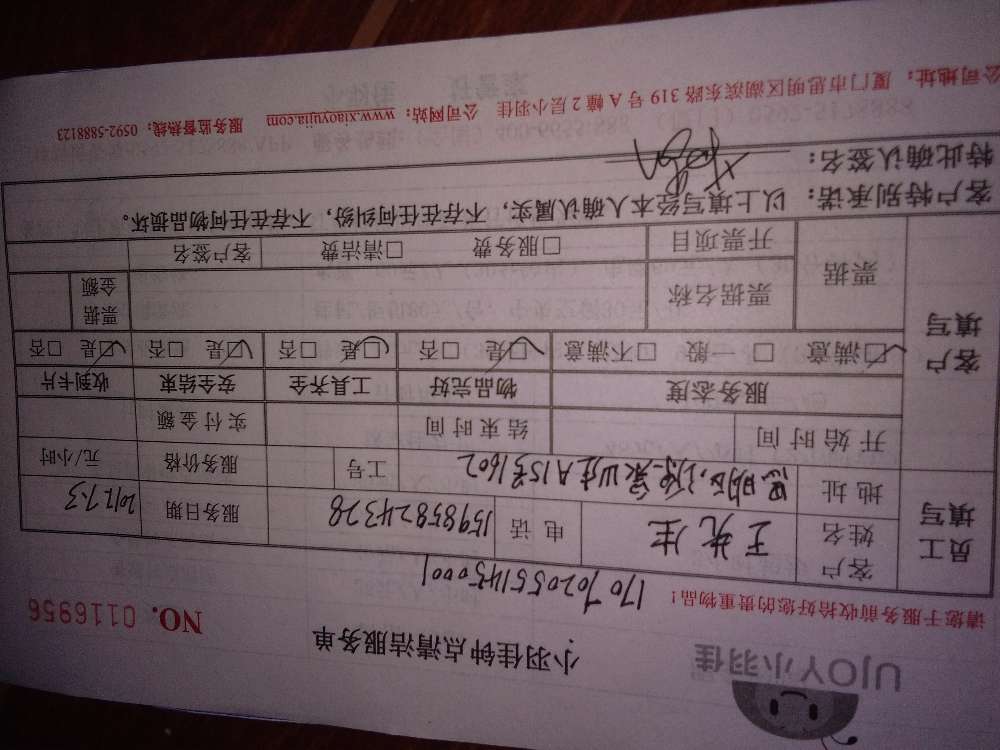 UJOY小羽佳
小羽佳钟点清洁服务单
NO. 0116956
请您于服务前收拾好您的贵重物品!
1707020551450001
员工填写
客户姓名 王先生 电话 15985824328 服务日期 2017.7.3
地址 工号 服务价格 元/小时
开始时间 结束时间 实付金额
客户填写
服务态度 物品完好 工具齐全 安全结束 收到卡片
☑满意 □一般 □不满意 ☑是 □否 ☑是 □否 ☑是 □否 ☑是 □否
票据 票据名称 票据金额
开票项目 □服务费 □清洁费 客户签名
客户特别承诺:以上填写经本人确认属实,不存在任何纠纷,不存在任何物品损坏。
特此确认签名:
公司地址:厦门市思明区湖滨东路 319 号 A 幢 2 层小羽佳 公司网站:www.xiaoyujia.com 服务监督热线:0592-5888123